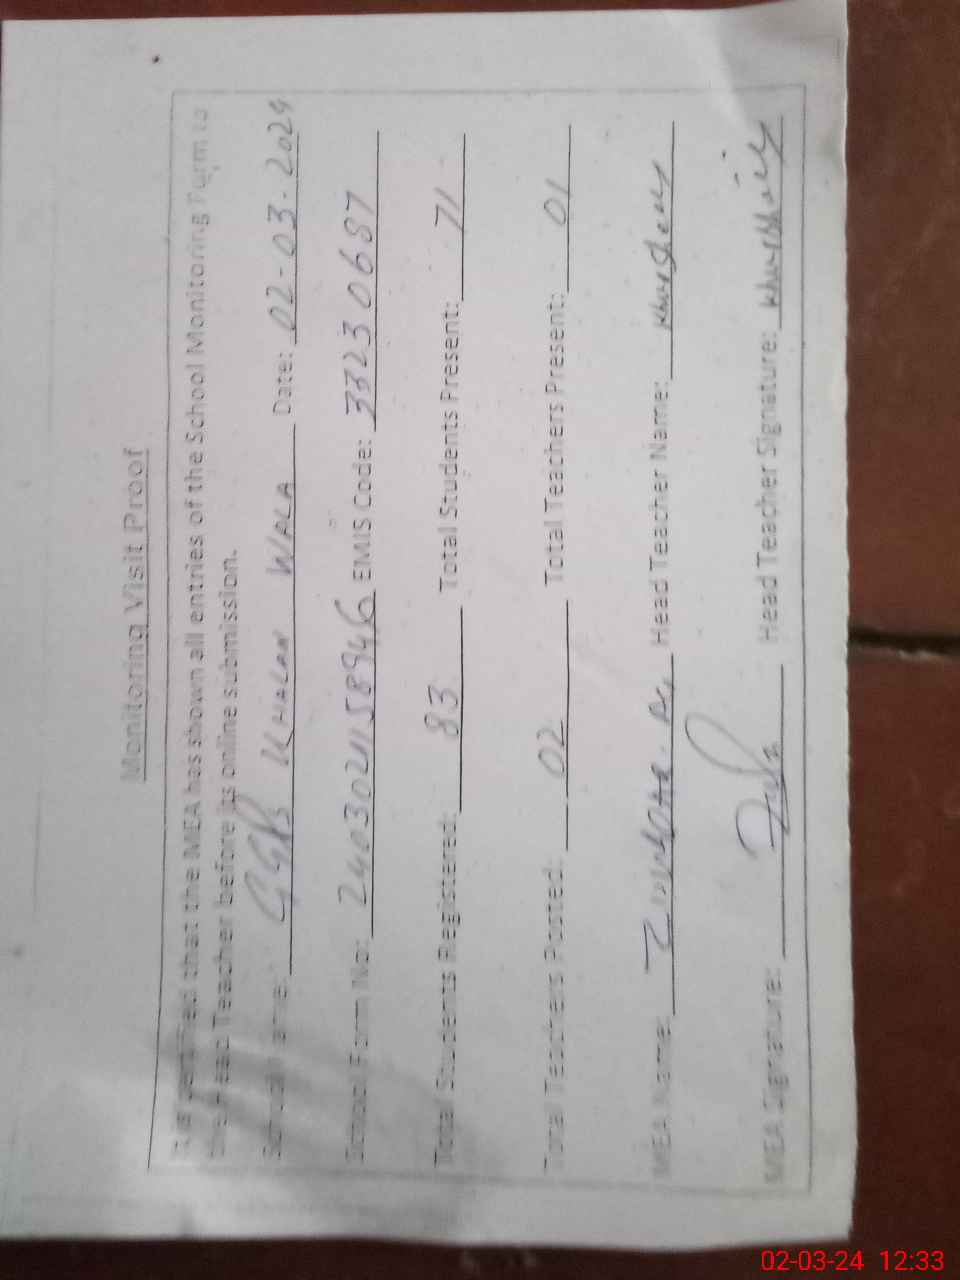 Monitoring Visit Proof
It is certified that the MEA has shown all entries of the School Monitoring Form to
the Head Teacher before its online submission.
School Name: GGPS KHALAN WALA Date: 02-03-2024
School Form No: EMIS Code: 33230687
Total Students Registered: 83 Total Students Present: 71
Total Teachers Posted: 02 Total Teachers Present: 01
MEA Name: Head Teacher Name:
MEA Signature: Head Teacher Signature:
02-03-24 12:33